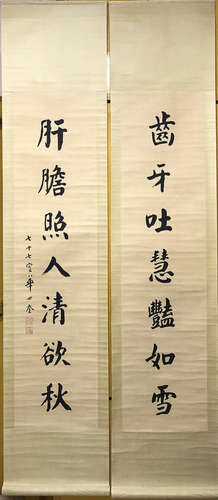 齒牙吐慧豔如雪
肝膽照人清欲秋
七十七字八華世奎